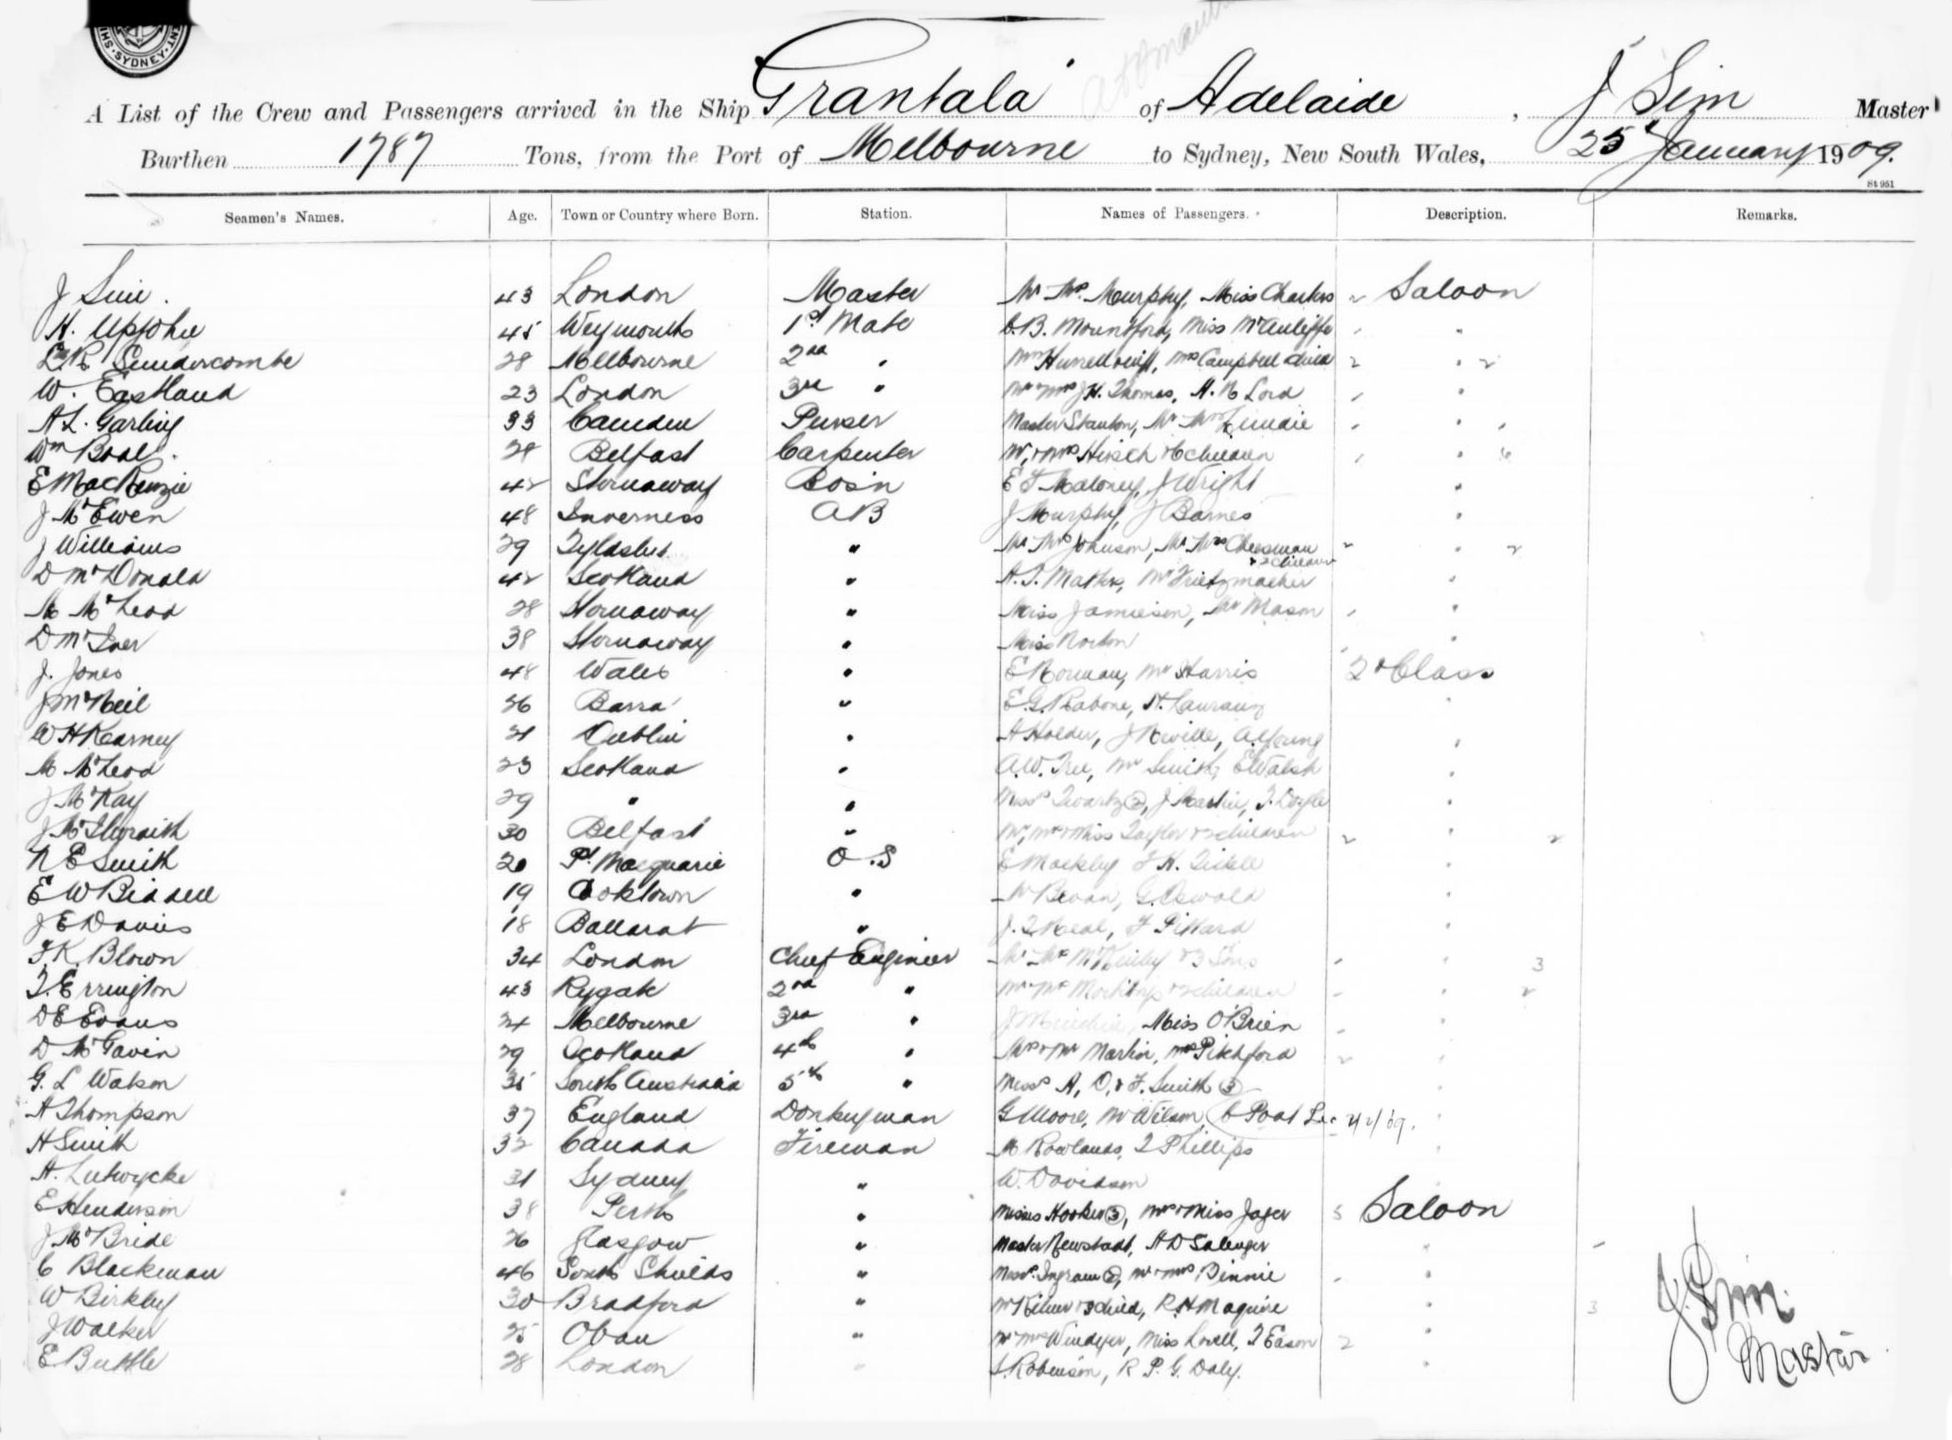 SYDNEY
A List of the Crew and Passengers arrived in the Ship Grantala of Adelaide, J Sim Master
Burthen 1787 Tons, from the Port of Melbourne to Sydney, New South Wales, 25 January 1909.
St 951
Seamen's Names. Age. Town or Country where Born. Station. Names of Passengers. Description. Remarks.
J Sim. 43 London Master Mr Mrs Murphy, Miss Charters Saloon
H. Upjohn 45 Weymouth 1st Mate C.B. Mountford, Miss McAuliffe "
Sundercombe 28 Melbourne 2nd " Mrs Campbell child " 2
W. Eastland 23 London 3rd " Mr & Mrs J.H. Thomas, H. R Lord "
A L. Garling 33 Camden Purser Master Stanton, Mr Mrs "
Wm Boal. 28 Belfast Carpenter Mr, & Mrs Hirsch & 6 children " 6
E MacKenzie 42 Stornaway Bos'n E F Maloney, J Wright "
J McEwen 48 Inverness AB J Murphy, J Barnes "
J Williams 29 " Mr Mrs Johnson, Mr Mrs Cheesman & 2 children " 2
D McDonald 42 Scotland " "
M McLeod 28 Stornaway " Miss Jamieson, Mr Mason "
D McIver 38 Stornaway " Miss Norton "
J. Jones 48 Wales " E Norman, Mr Harris 2nd Class
J McNeil 26 Barra " E.G. Rabone, "
W H Kearney 21 Dublin " A Holder, J Neville, A. Young "
M McLeod 23 Scotland " A.W. Tree, Mr Smith, E Walsh "
J McKay 29 " " J Martin, T. Doyle "
J McIlwraith 30 Belfast " Mr, Mrs & Miss Taylor & 2 children " 2
N E Smith 20 Pt Macquarie O.S "
E W Biddell 19 Cooktown " Mr Bevan, G. Oswald "
J E Davies 18 Ballarat " F Pittard "
F.K. Blown 34 London Chief Engineer & 3 " 3
T. Errington 43 Rygate 2nd " & 2 children " 2
D E Evans 24 Melbourne 3rd " Miss O'Brien "
D McGavin 29 Scotland 4th " Mrs & Mr Martin, Mrs Pitchford "
G. L Watson 35 South Australia 5th " Messrs A, O, & F. Smith (3) "
A Thompson 37 England Donkeyman G Moore, Mr Wilson, "
H Smith 32 Canada Fireman M Rowlands, T Phillips "
A. Lutwyche 31 Sydney " W. Davidson
E Henderson 38 Perth " Misses Hooker (3), Mrs & Miss Jager 5 Saloon
J McBride 26 Glasgow " Master Newstadt, A D Salenger "
C Blackman 46 South Shields " Messrs Ingram (2), Mr & Mrs Binnie "
W Birkby 30 Bradford " R. H Maguire " 3
J Walker 25 Oban " Mr Mrs Windeyer, Miss Lovell, T Eason 2 "
E Buttle 28 London " S. Robinson, R P. G. Daly. "
J. Sim.
Master